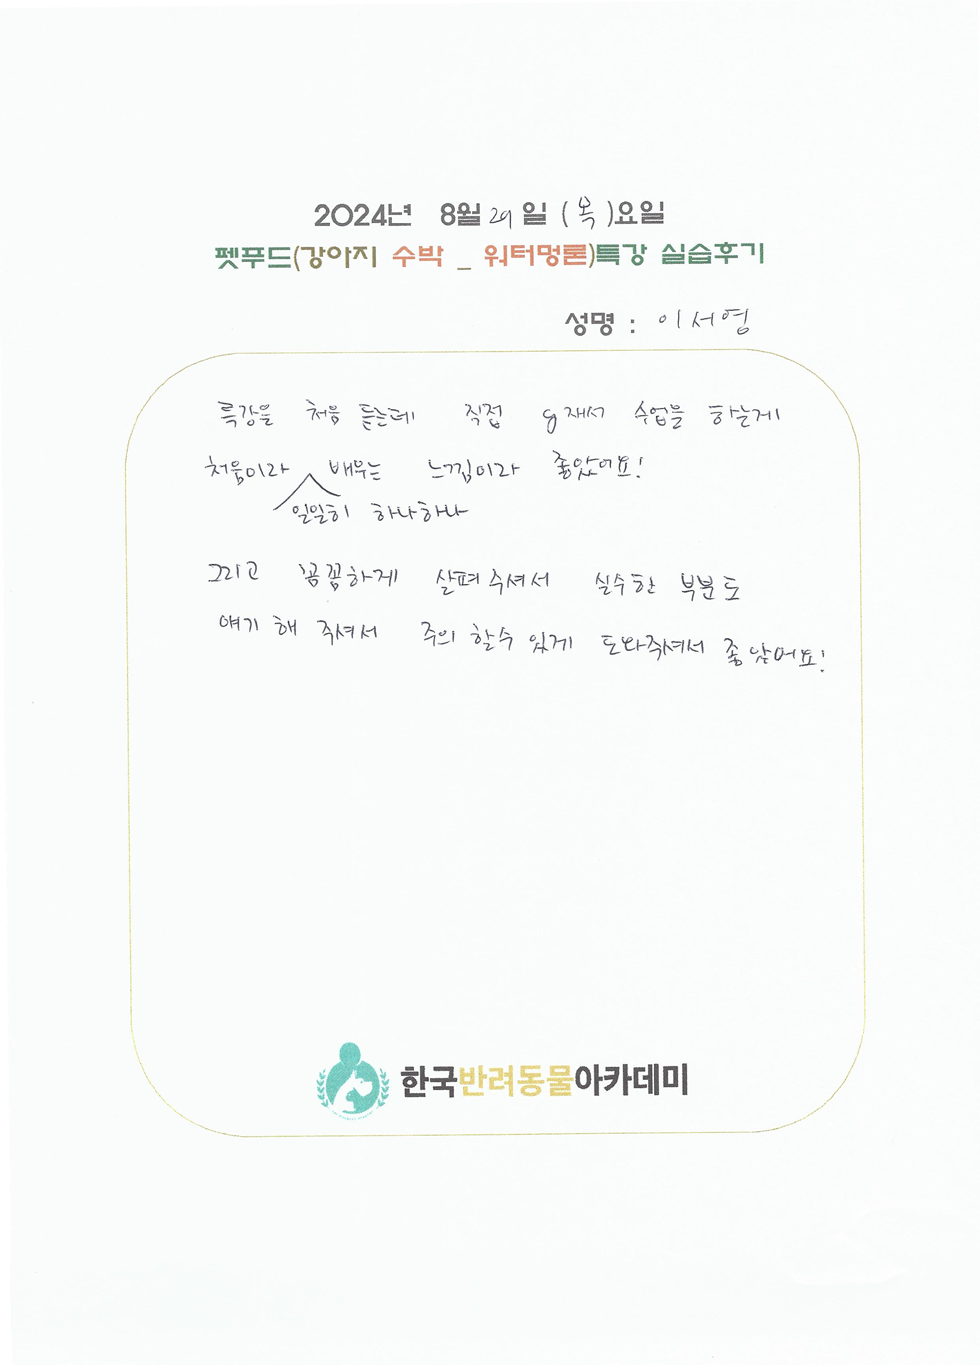 2024년 8월 29일 (목)요일
펫푸드(강아지 수박 _ 워터멍론)특강 실습후기
성명 : 이서영
특강을 처음 듣는데 직접 g재서 수업을 하는게
처음이라 배우는 느낌이라 좋았어요!
일일히 하나하나
그리고 꼼꼼하게 살펴주셔서 실수한 부분도
얘기 해 주셔서 주의 할수 있게 도와주셔서 좋았어요!
한국반려동물아카데미